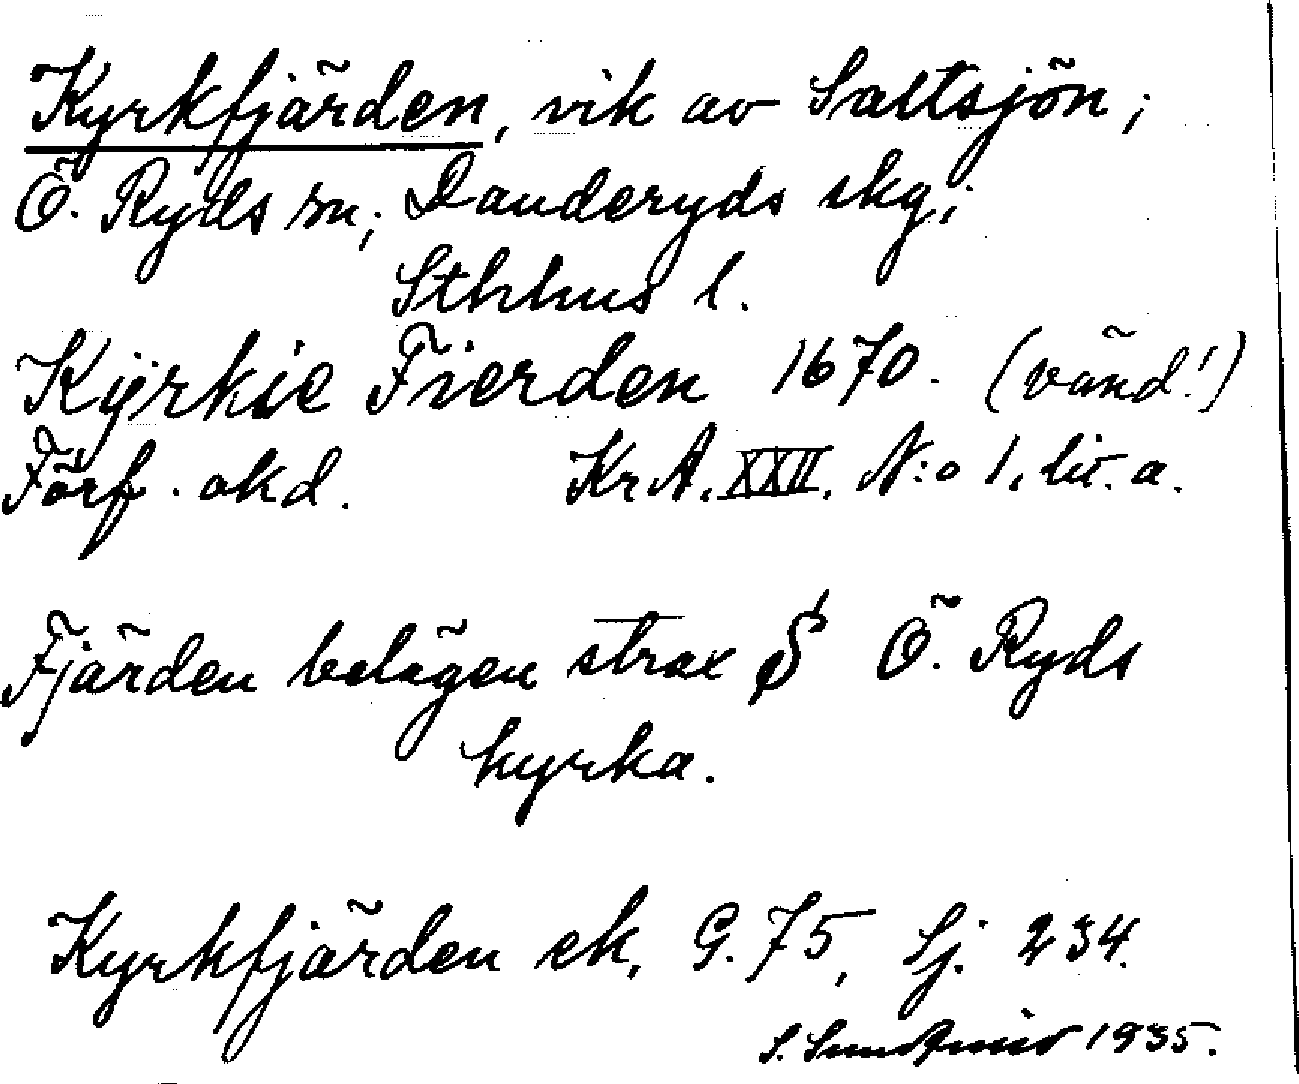 Kyrkfjärden, vik av Saltsjön;
Ö. Ryds sn; Danderyds skg;
Sthlms l.
Kÿrkie Fierden 1670. (vänd!)
Förf. okd. Kr A. XXII. N:o 1. lit. a.
Fjärden belägen strax S Ö. Ryds
kyrka.
Kyrkfjärden ek. G. 75, Sj. 234.
S. 1935.